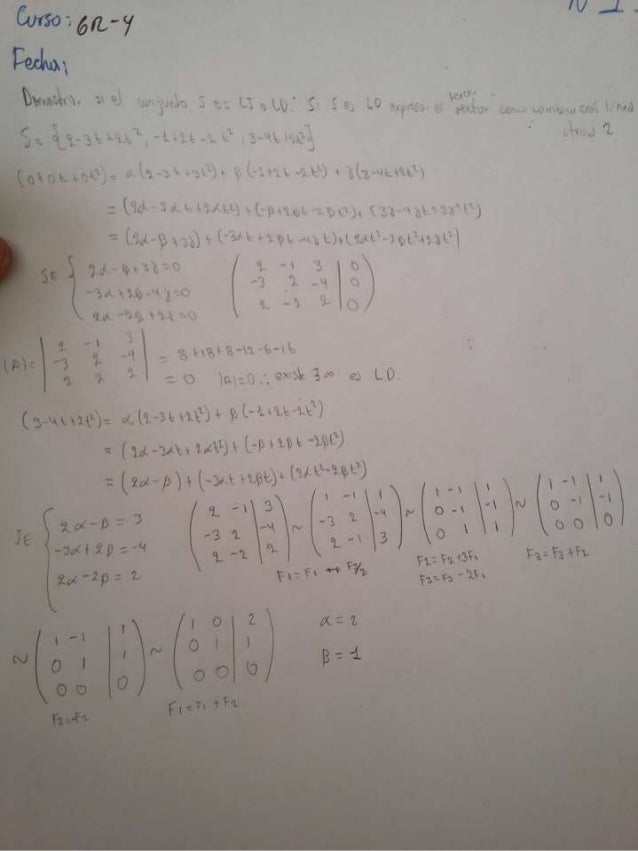 N 1
Curso: 6R-4
Fecha:
Demostrar si el conjunto S es LI o LD. Si S es LD exprese el tercer vector como combinación lineal otros 2
S = {2-3t+2t², -1+2t-2t², 3-4t+2t²}
(0+0t+0t²) = α(2-3t+2t²) + β(-1+2t-2t²) + γ(3-4t+2t²)
= (2α-3αt+2αt²) + (-β+2βt-2βt²) + (3γ-4γt+2γt²)
= (2α-β+3γ) + (-3αt+2βt-4γt) + (2αt²-2βt²+2γt²)
SE { 2α-β+3γ=0 ( 2 -1 3 | 0
-3α+2β-4γ=0 -3 2 -4 | 0
2α-2β+2γ=0 2 -2 2 | 0 )
|A| = | 2 -1 3
-3 2 -4 | = 8+18+8-12-6-16
2 2 2 | = 0 |A|=0 ∴ exist ∃∞ es LD.
(3-4t+2t²) = α(2-3t+2t²) + β(-1+2t-2t²)
= (2α-3αt+2αt²) + (-β+2βt-2βt²)
= (2α-β) + (-3αt+2βt) + (2αt²-2βt²)
SE { 2α-β = 3 ( 2 -1 | 3 ) ~ ( 1 -1 | 1 ) ~ ( 1 -1 | 1 ) ~ ( 1 -1 | 1 )
-3α+2β = -4 ( -3 2 | -4 ) ( -3 2 | -4 ) ( 0 -1 | -1 ) ( 0 -1 | -1 )
2α-2β = 2 ( 2 -2 | 2 ) ( 2 -1 | 3 ) ( 0 1 | 1 ) ( 0 0 | 0 )
F1=F1 ↔ F3/2 F2=F2+3F1 F3=F3+F2
F3=F3-2F1
~ ( 1 -1 | 1 ) ~ ( 1 0 | 2 ) α = 2
( 0 1 | 1 ) ( 0 1 | 1 ) β = 1
( 0 0 | 0 ) ( 0 0 | 0 )
F2=-F2 F1=F1+F2